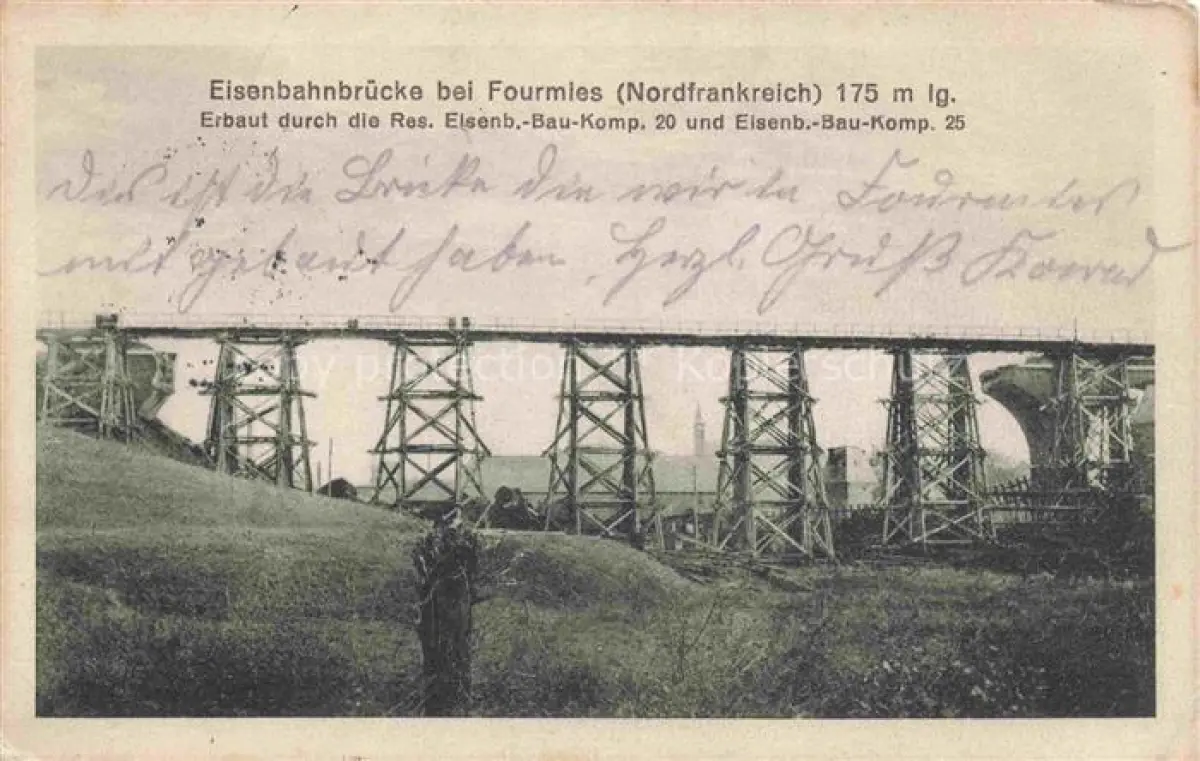 Eisenbahnbrücke bei Fourmies (Nordfrankreich) 175 m lg.
Erbaut durch die Res. Eisenb.-Bau-Komp. 20 und Eisenb.-Bau-Komp. 25
Das ist die Brücke die wir in Fourmies
mit gebaut haben. Herzl. Gruß Konrad
copy protection Kopierschutz